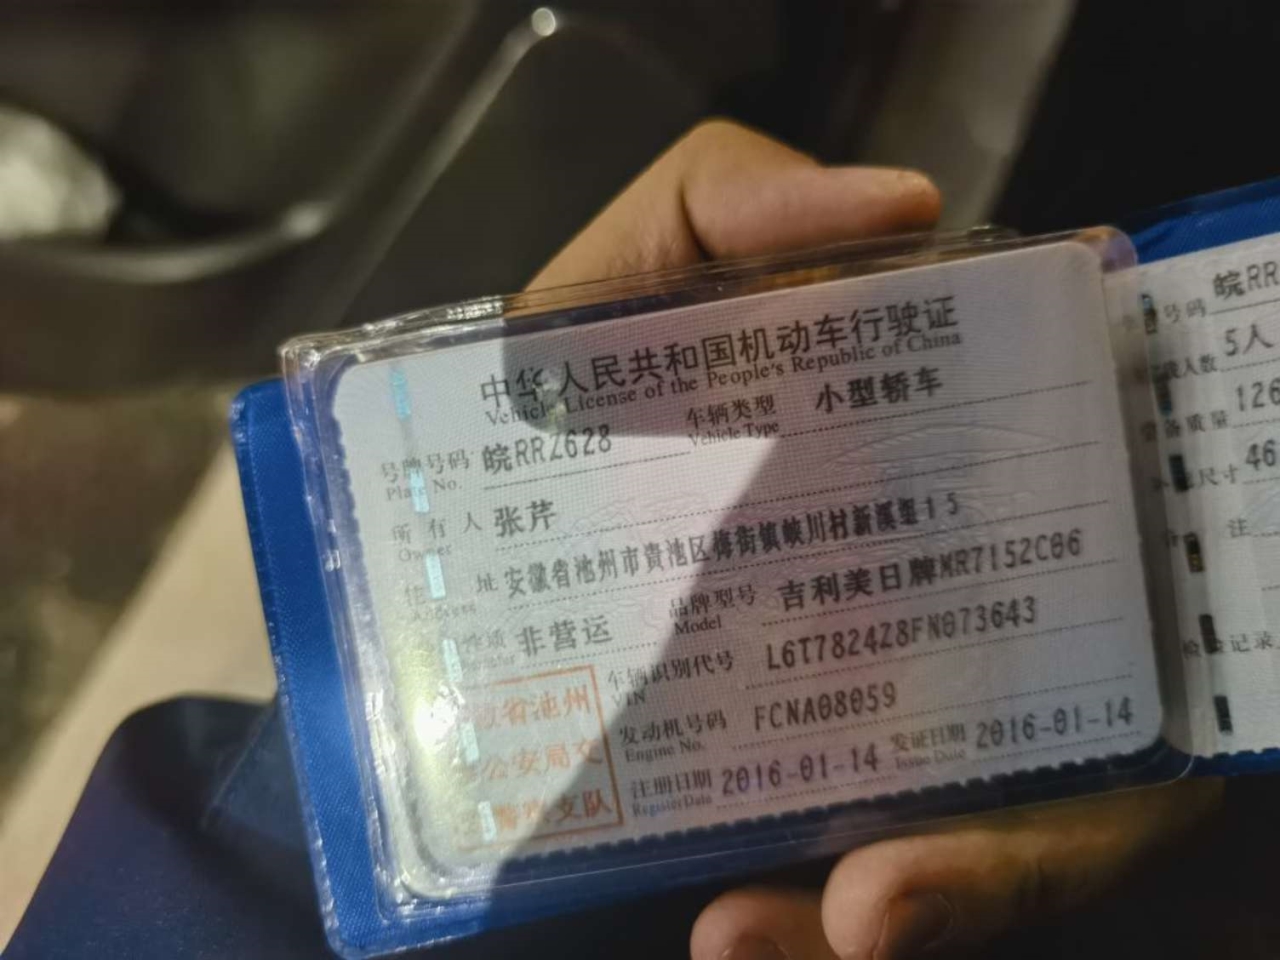 中华人民共和国机动车行驶证
Vehicle License of the People's Republic of China
号牌号码 皖RRZ628 车辆类型 小型轿车
Plate No. Vehicle Type
所有人 张芹
Owner
住址 安徽省池州市贵池区梅街镇峡川村新溪组15
Address
性质 非营运 品牌型号 吉利美日牌MR7152C06
Model
车辆识别代号 L6T7824Z8FN073643
VIN
发动机号码 FCNA08059
Engine No.
注册日期 2016-01-14 发证日期 2016-01-14
Register Date Issue Date
省池州
公安局交
警察支队
号码 皖RR
人数 5人
质量 126
尺寸 46
注
记录